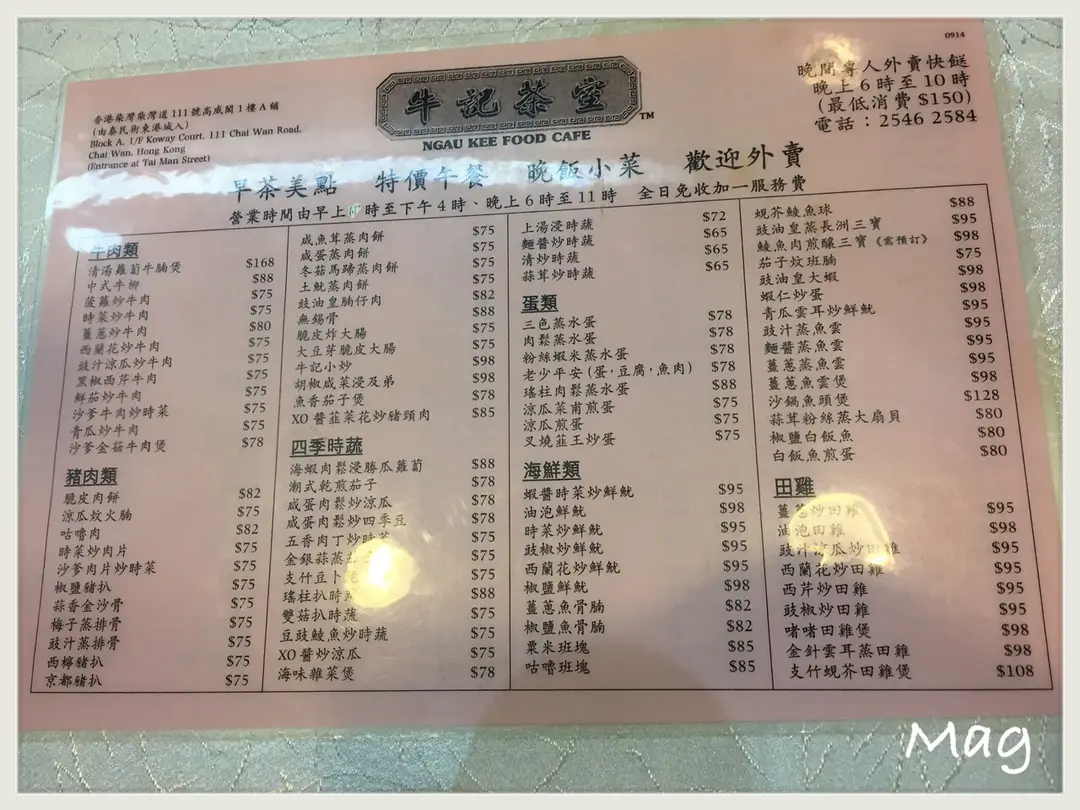 0914
香港柴灣柴灣道111號高威閣1樓A舖
(由泰民街東港城入)
Block A, 1/F Koway Court, 111 Chai Wan Road,
Chai Wan, Hong Kong
(Entrance at Tai Man Street)
牛記茶室
TM
NGAU KEE FOOD CAFE
晚間專人外賣快餸
晚上6時至10時
(最低消費 $150)
電話：2546 2584
早茶美點 特價午餐 晚飯小菜 歡迎外賣
營業時間由早上 時至下午4時、晚上6時至11時 全日免收加一服務費
牛肉類
清湯蘿蔔牛腩煲 $168
中式牛柳 $88
菠蘿炒牛肉 $75
時菜炒牛肉 $75
薑蔥炒牛肉 $80
西蘭花炒牛肉 $75
豉汁涼瓜炒牛肉 $75
黑椒西芹牛肉 $75
鮮茄炒牛肉 $75
沙爹牛肉炒時菜 $75
青瓜炒牛肉 $75
沙爹金菇牛肉煲 $78
豬肉類
脆皮肉餅 $82
涼瓜炆火腩 $75
咕嚕肉 $82
時菜炒肉片 $75
沙爹肉片炒時菜 $75
椒鹽豬扒 $75
蒜香金沙骨 $75
梅子蒸排骨 $75
豉汁蒸排骨 $75
西檸豬扒 $75
京都豬扒 $75
咸魚茸蒸肉餅 $75
咸蛋蒸肉餅 $75
冬菇馬蹄蒸肉餅 $75
土魷蒸肉餅 $75
豉油皇腩仔肉 $82
無錫骨 $88
脆皮炸大腸 $75
大豆芽脆皮大腸 $75
牛記小炒 $98
胡椒咸菜浸及弟 $98
魚香茄子煲 $78
XO醬韮菜花炒豬頸肉 $85
四季時蔬
海蝦肉鬆浸勝瓜蘿蔔 $88
潮式乾煎茄子 $78
咸蛋肉鬆炒涼瓜 $78
咸蛋肉鬆炒四季豆 $78
五香肉丁炒時菜 $75
金銀蒜蒸茄子 $75
支竹豆卜 $75
瑤柱扒時蔬 $88
雙菇扒時蔬 $75
豆豉鯪魚炒時蔬 $75
XO醬炒涼瓜 $75
海味雜菜煲 $78
上湯浸時蔬 $72
麵醬炒時蔬 $65
清炒時蔬 $65
蒜茸炒時蔬 $65
蛋類
三色蒸水蛋 $78
肉鬆蒸水蛋 $78
粉絲蝦米蒸水蛋 $78
老少平安(蛋，豆腐，魚肉) $78
瑤柱肉鬆蒸水蛋 $88
涼瓜菜甫煎蛋 $75
涼瓜煎蛋 $75
叉燒韮王炒蛋 $75
海鮮類
蝦醬時菜炒鮮魷 $95
油泡鮮魷 $98
時菜炒鮮魷 $95
豉椒炒鮮魷 $95
西蘭花炒鮮魷 $95
椒鹽鮮魷 $98
薑蔥魚骨腩 $82
椒鹽魚骨腩 $82
粟米班塊 $85
咕嚕班塊 $85
蜆芥鯪魚球 $88
豉油皇蒸長洲三寶 $95
鯪魚肉煎釀三寶《需預訂》 $98
茄子炆班腩 $75
豉油皇大蝦 $98
蝦仁炒蛋 $98
青瓜雲耳炒鮮魷 $95
豉汁蒸魚雲 $95
麵醬蒸魚雲 $95
薑蔥蒸魚雲 $95
薑蔥魚雲煲 $98
沙鍋魚頭煲 $128
蒜茸粉絲蒸大扇貝 $80
椒鹽白飯魚 $80
白飯魚煎蛋 $80
田雞
薑蔥炒田雞 $95
油泡田雞 $98
豉汁涼瓜炒田雞 $95
西蘭花炒田雞 $95
西芹炒田雞 $95
豉椒炒田雞 $95
啫啫田雞煲 $98
金針雲耳蒸田雞 $98
支竹蜆芥田雞煲 $108
Mag